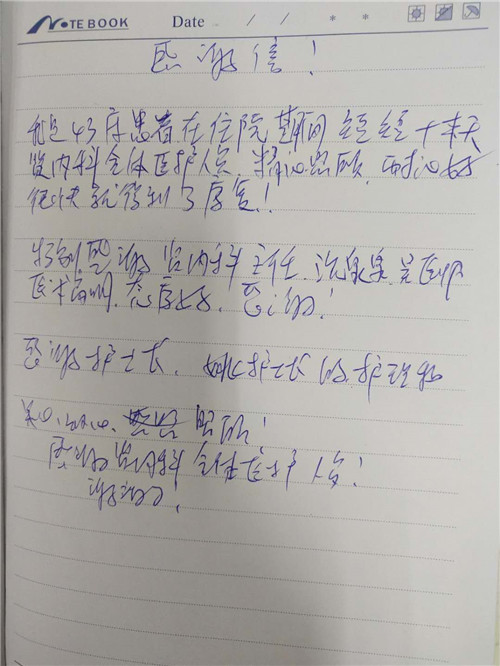 NOTEBOOK Date / / * *
感谢信!
我是43床患者在住院期间 经经十来天
肾内科全体医护人员 精心照顾
很快就得到了康复!
特别感谢肾内科主任
医术高明 态度好 感谢!
感谢护士长 护士长的护理
关心 照顾!
感谢肾内科全体医护人员!
谢谢!